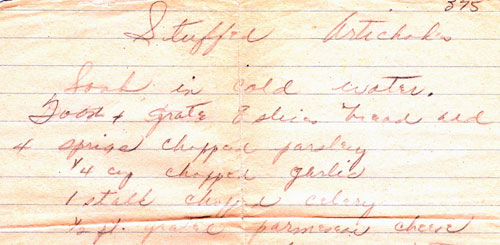 375
Stuffed Artichokes
Soak in cold water.
Toast & grate 8 slices bread add
4 sprigs chopped parsley
1/4 cup chopped garlic
1 stalk chopped celery
1/2 pt. grated parmesan cheese